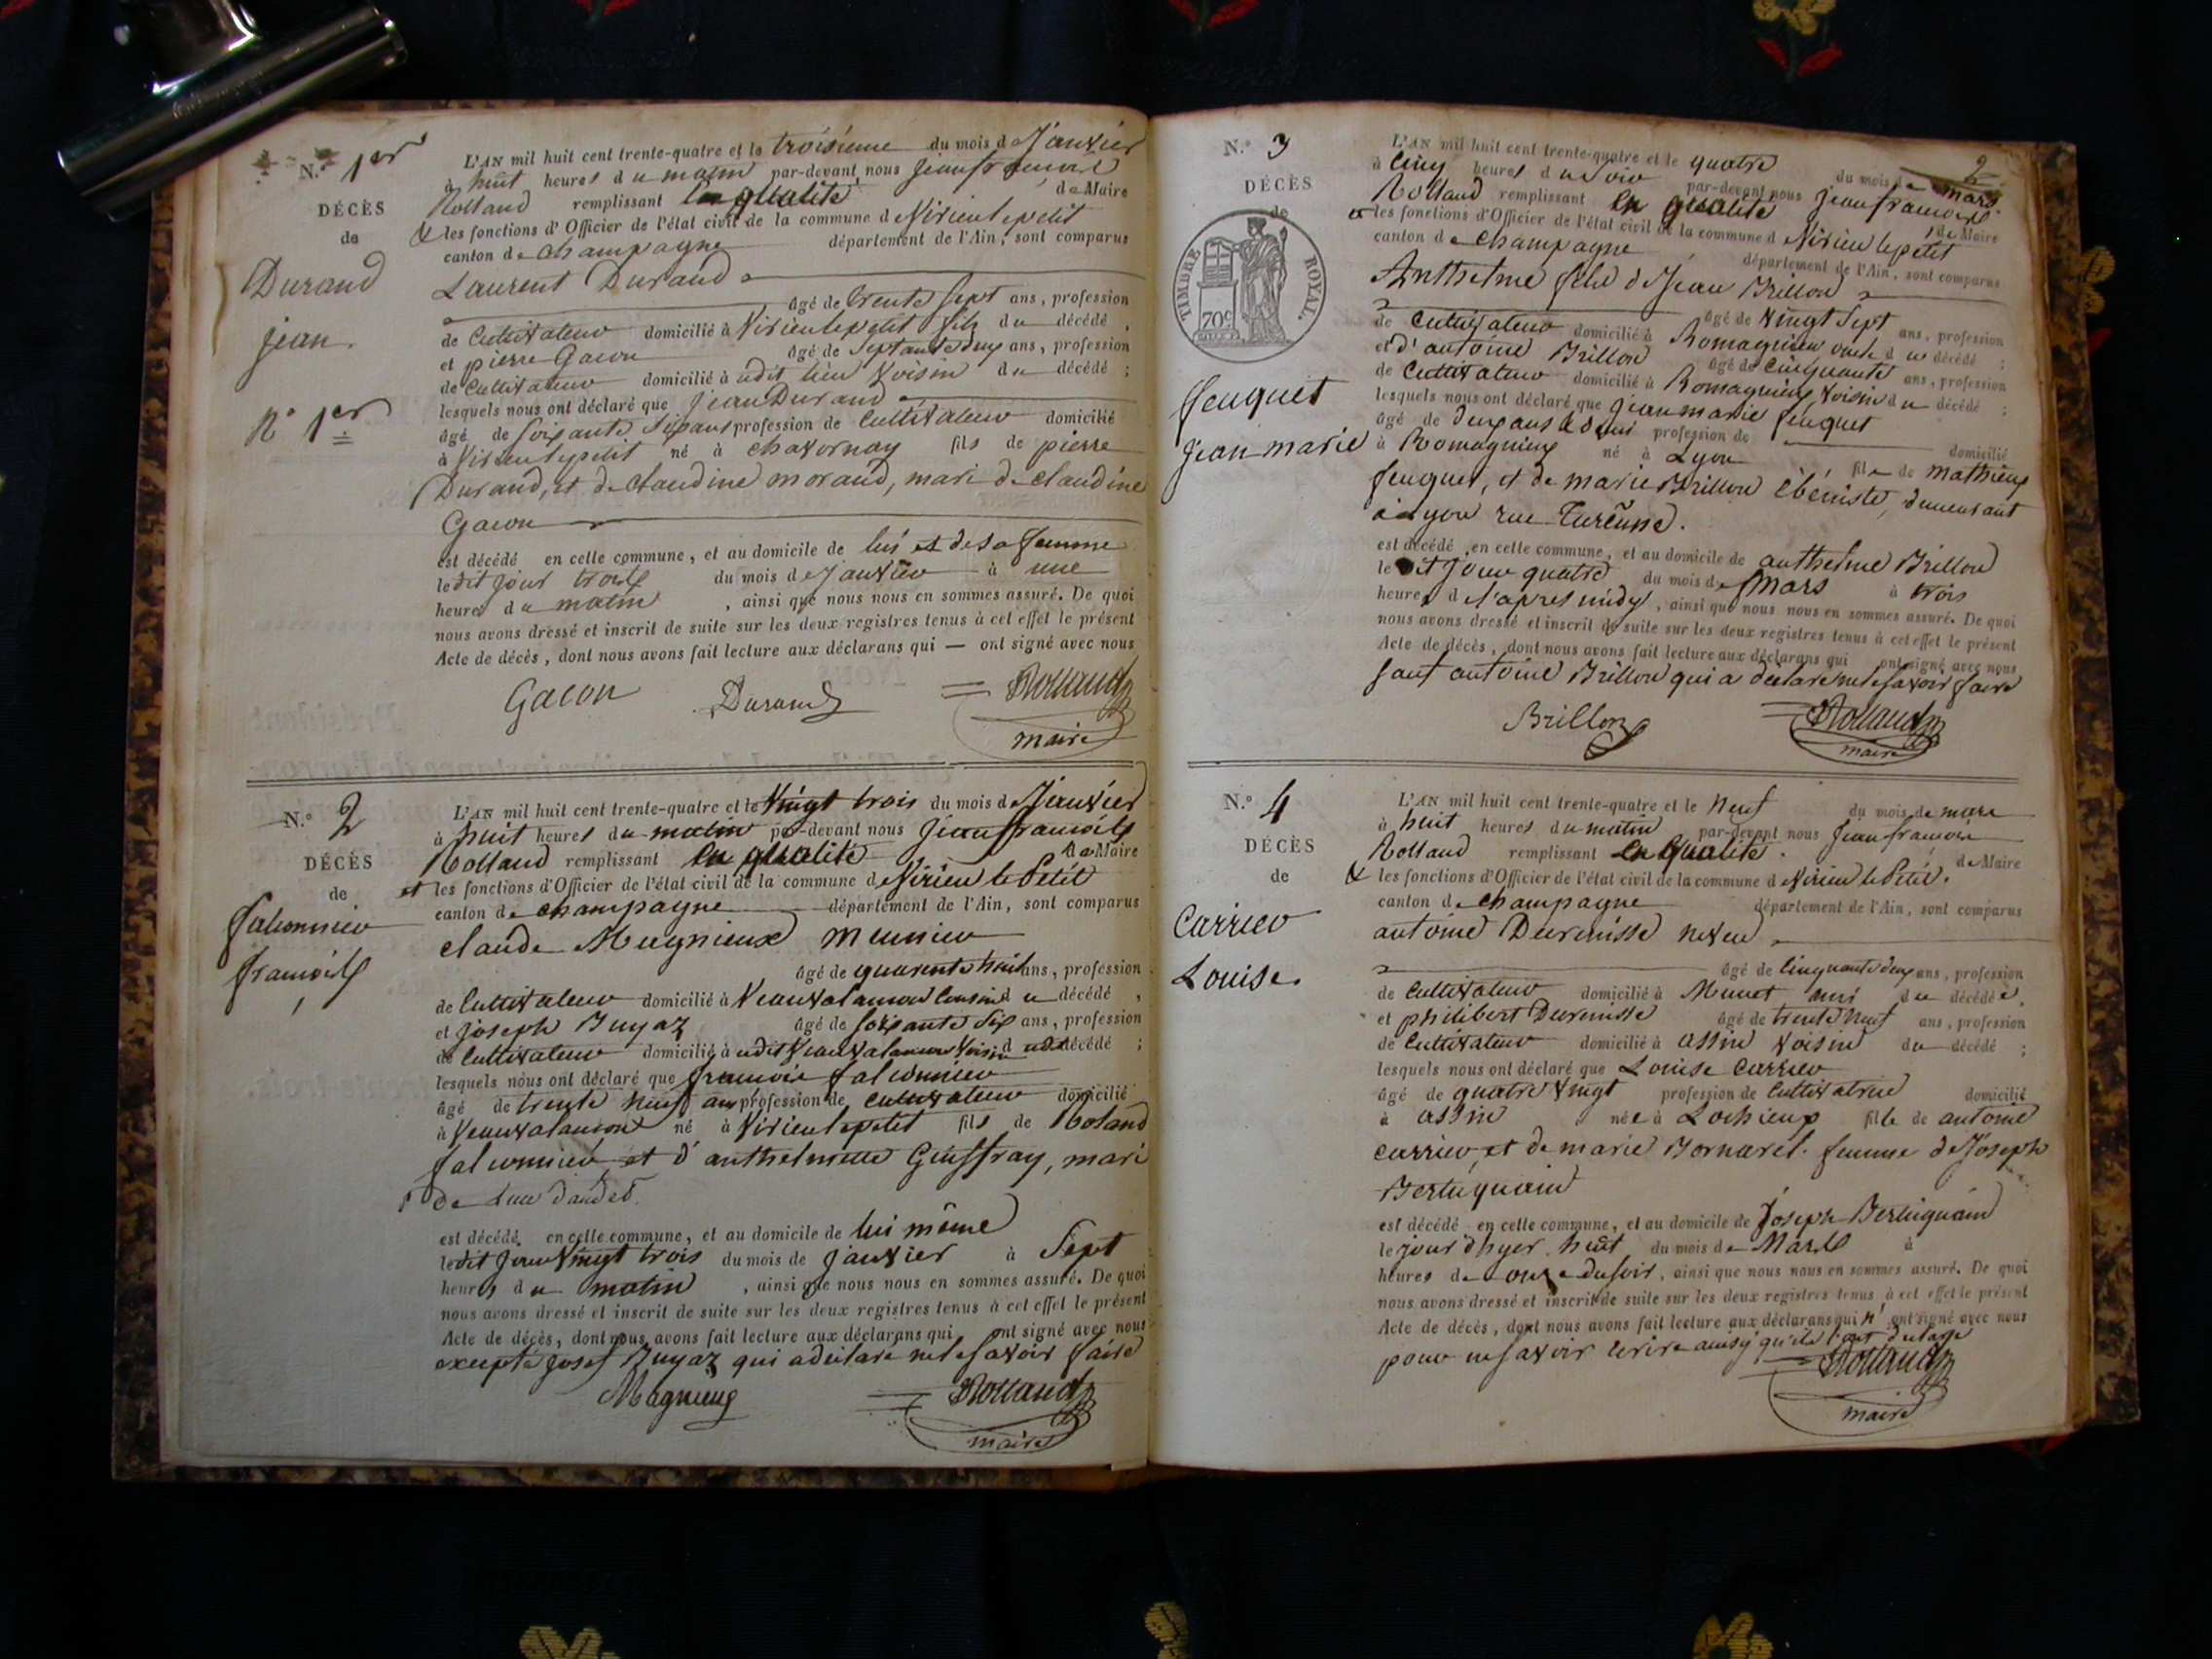 N.o 1er
DÉCÈS
de
Durand
jean.
N° 1er
L'AN mil huit cent trente-quatre et le troisieme du mois de Janvier
à huit heures du matin par-devant nous jean françois
Rolland remplissant en qualité de Maire
& les fonctions d'Officier de l'état civil de la commune de Virieu le petit
canton de champagne département de l'Ain, sont comparus
Laurent Durand
âgé de trente sept ans, profession
de Cultivateur domicilié à Virieu le petit fils du décédé,
et pierre Gacon âgé de Septante deux ans, profession
de Cultivateur domicilié à udit lieu voisin du décédé ;
lesquels nous ont déclaré que jean Durand
âgé de soixante six ans profession de Cultivateur domicilié
à Virieu le petit né à chavornay fils de pierre
Durand, et de claudine morand, mari de claudine
Gacon
est décédé en cette commune, et au domicile de lui et de sa femme
le dit jour trois du mois de janvier à une
heures du matin, ainsi que nous nous en sommes assuré. De quoi
nous avons dressé et inscrit de suite sur les deux registres tenus à cet effet le présent
Acte de décès, dont nous avons fait lecture aux déclarans qui — ont signé avec nous
Gacon Durand Rolland
maire
N.o 2
DÉCÈS
de
falconnier
françois
L'AN mil huit cent trente-quatre et le Vingt trois du mois de Janvier
à huit heures du matin par-devant nous Jean françois
Rolland remplissant en qualité de Maire
et les fonctions d'Officier de l'état civil de la commune de Virieu le Petit
canton de champagne département de l'Ain, sont comparus
claude Mugnieux meunier
âgé de quarente huit ans, profession
de Cultivateur domicilié à cousin du décédé,
et joseph âgé de soixante six ans, profession
de Cultivateur domicilié à udit voisin udit décédé ;
lesquels nous ont déclaré que francois falconnier
âgé de trente neuf ans profession de cultivateur domicilié
à né à Virieu le petit fils de Roland
falconnier, et d'anthelmette Geuffray, mari
de
est décédé en cette commune, et au domicile de lui même
le dit jour vingt trois du mois de janvier à Sept
heures du matin, ainsi que nous nous en sommes assuré. De quoi
nous avons dressé et inscrit de suite sur les deux registres tenus à cet effet le présent
Acte de décès, dont nous avons fait lecture aux déclarans qui ont signé avec nous
excepté josef qui a déclaré ne le savoir faire
Rolland
maire
2
N.o 3
DÉCÈS
de
TIMBRE ROYAL.
70c
feuquet
jean marie
L'AN mil huit cent trente-quatre et le quatre du mois de mars
à cinq heures du soir par-devant nous jean françois
Rolland remplissant en qualité de Maire
& les fonctions d'Officier de l'état civil de la commune de Virieu le petit
canton de champagne département de l'Ain, sont comparus
Anthelme fils de Jean Brillon
âgé de vingt Sept ans, profession
de cultivateur domicilié à Romagnieu oncle du décédé ;
et d'antoine Brillon âgé de cinquante ans, profession
de cultivateur domicilié à Romagnieu, voisin du décédé ;
lesquels nous ont déclaré que jean marie feuquet
âgé de deux ans & demi profession de domicilié
à Romagnieu né à Lyon fils de mathieu
feuquet, et de marie Brillon ébéniste, demeurant
à Lyon rue Turenne.
est décédé en cette commune, et au domicile de anthelme Brillon
le dit jour quatre du mois de Mars à trois
heures de l'apres midy, ainsi que nous nous en sommes assuré. De quoi
nous avons dressé et inscrit de suite sur les deux registres tenus à cet effet le présent
Acte de décès, dont nous avons fait lecture aux déclarans qui ont signé avec nous
sauf antoine Brillon qui a déclaré ne le savoir faire
Brillon Rolland
maire
N.o 4
DÉCÈS
de
Carrier
Louise.
L'AN mil huit cent trente-quatre et le neuf du mois de mars
à huit heures du matin par-devant nous Jean francois
Rolland remplissant en qualité. de Maire
& les fonctions d'Officier de l'état civil de la commune de Virieu le Petit.
canton de champagne département de l'Ain, sont comparus
antoine neveu
âgé de cinquante deux ans, profession
de cultivateur domicilié à ami du décédé,
et philibert âgé de trente neuf ans, profession
de Cultivateur domicilié à assin voisin du décédé ;
lesquels nous ont déclaré que Louise Carrier
âgé de quatre vingt profession de Cultivatrice domicilié
à assin née à Lochieux fille de antoine
carrier, et de marie Bornarel. femme de Joseph
est décédé en cette commune, et au domicile de Joseph
le jour d'hyer huit du mois de Mars à
heures de onze du soir, ainsi que nous nous en sommes assuré. De quoi
nous avons dressé et inscrit de suite sur les deux registres tenus à cet effet le présent
Acte de décès, dont nous avons fait lecture aux déclarans qui n'ont signé avec nous
pour ne savoir ecrire ainsy qu'ils l'ont declaré
Rolland
maire